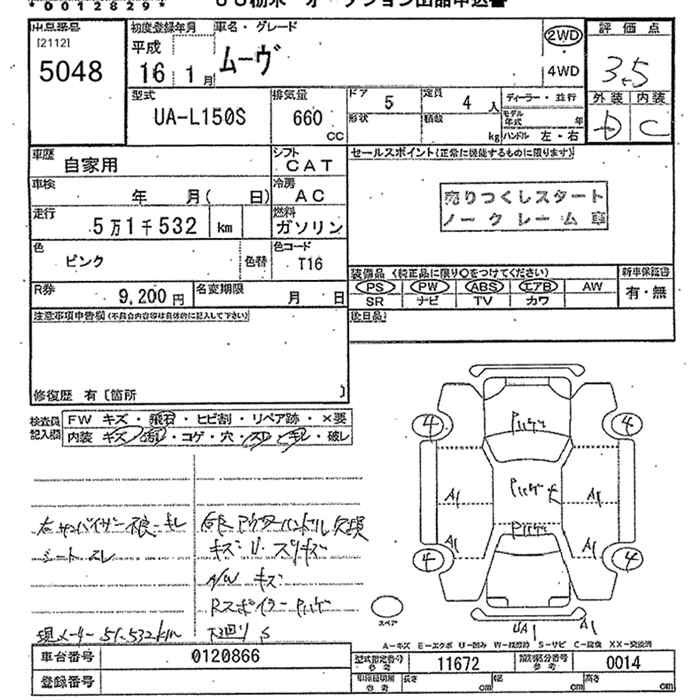 *00128829*
出品番号
[2112]
5048
初度登録年月
平成
16 1月
車名・グレード
ムーヴ
2WD
4WD
評価点
3.5
外装 内装
D C
型式
UA-L150S
排気量
660
CC
ドア 5
定員 4 人
形状
積載 kg
ディーラー・並行
モデル年式 年
ハンドル 左・右
車歴
自家用
シフト
CAT
車検
年 月( 日)
冷房
AC
走行
5万1千532 km
燃料
ガソリン
色
ピンク
色替
色コード
T16
R券
9,200円
名変期限
月 日
セールスポイント(正常に機能するものに限ります)
売りつくしスタート
ノークレーム車
装備品 (純正品に限り○をつけてください)
PS PW ABS エアB AW
SR ナビ TV カワ
新車保証書
有・無
後日品
注意事項申告欄(不具合内容等は具体的に記入して下さい)
修復歴 有〔箇所 〕
検査員記入欄
FW キズ・飛石・ヒビ割・リペア跡・×要
内装 キズ・汚れ・コゲ・穴・スレ・キレ・破レ
シートスレ
キズ・U・スリキズ
A/W キズ
Rスポイラー ハゲ
現メーター 51,532km
下廻り S
4 4
A1 A1
A1 A1
4 4
UA1 A1
スペア
A-キズ E-エクボ U-凹み W-補修跡 S-サビ C-腐食 XX-交換済
車台番号 0120866
登録番号
型式指定番号 参考 11672
類別区分番号 参考 0014
車両諸明細 参考 長さ cm 幅 cm 高さ cm